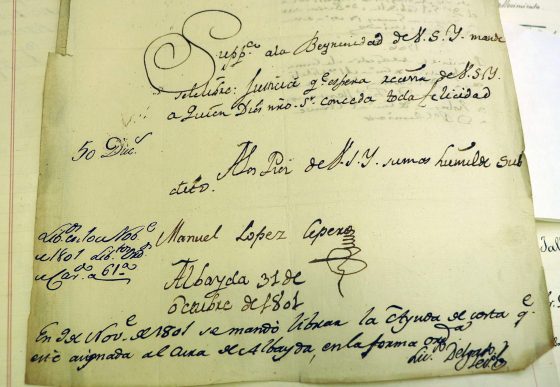 Supp.co a la Beynenidad de V. S. Y. mande
se le libre: Justicia q.e espera recivir de V. S. Y.
a quien Dios nro. S.r conceda toda felicidad
50 Duc.s
A los Pies de V. S. Y. su mas humilde sub
dito.
Manuel Lopez Cepero
Albayda 31 de
octubre de 1801
de 1801
En 9 de Nov.e de 1801 se mandó librar la Ayuda de costa q.e
está asignada al Cura de Albayda, en la forma ord.a
Lic. Delgado